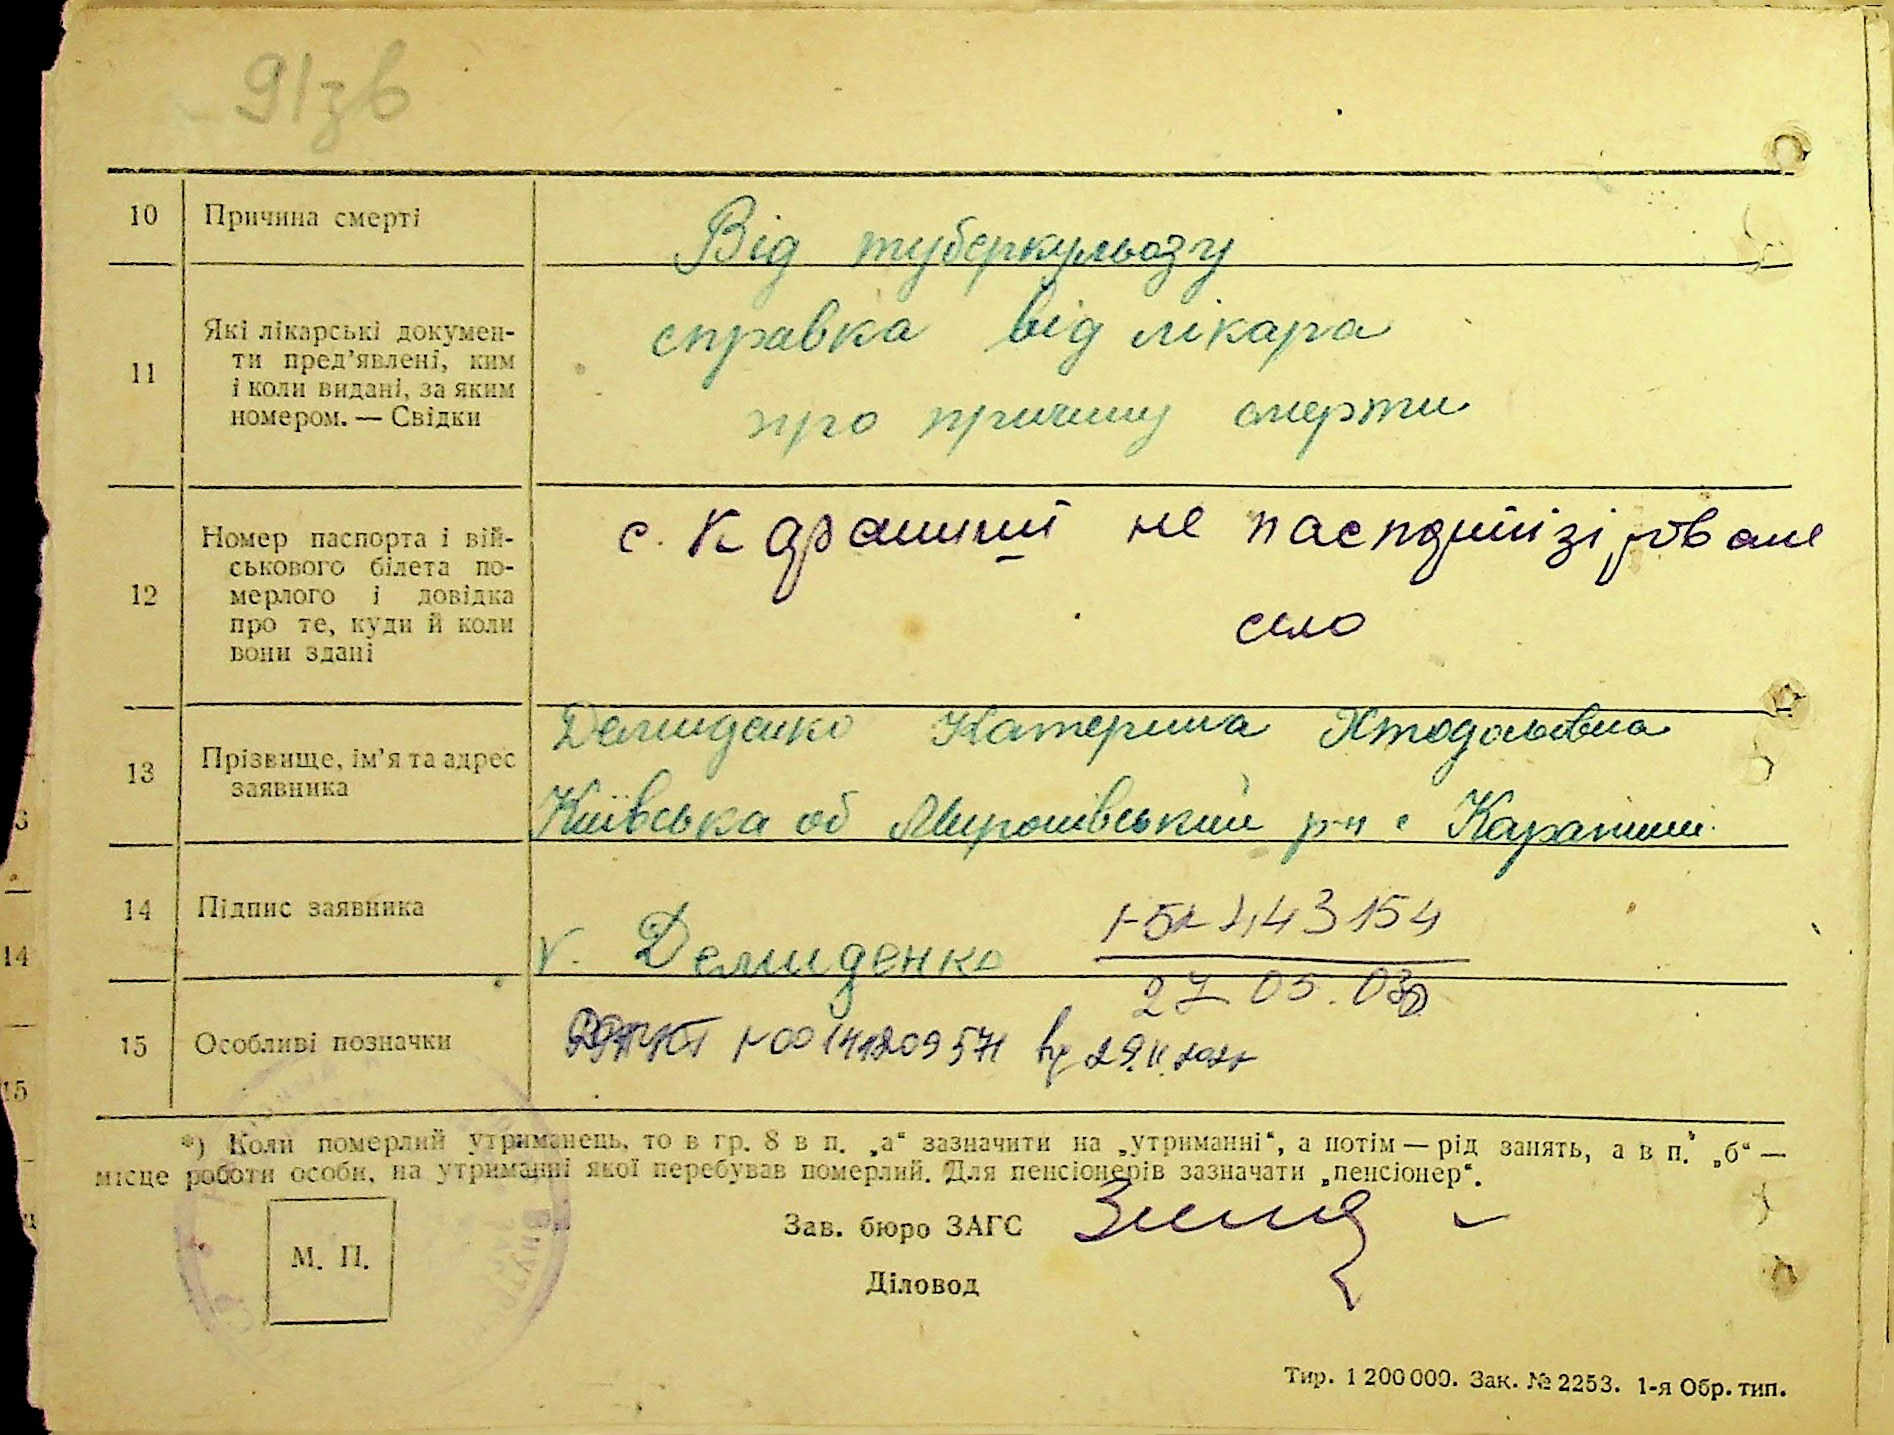 91зв
10 Причина смерті Від туберкульозу
11 Які лікарські докумен-
ти пред’явлені, ким
і коли видані, за яким
номером. — Свідки
справка від лікара
про причину смерти
12 Номер паспорта і вій-
ськового білета по-
мерлого і довідка
про те, куди й коли
вони здані
с. Карапиші не паспортізіроване
село
13 Прізвище, ім’я та адрес
заявника
Демиденко Катерина
Київська об Миронівський р-н с Карапиші
14 Підпис заявника v. Демиденко
443154
27 05.03
15 Особливі позначки 00141209571
*) Коли померлий утриманець, то в гр. 8 в п. „а“ зазначити на „утриманні“, а потім — рід занять, а в п. „б“ —
місце роботи особи, на утриманні якої перебував померлий. Для пенсіонерів зазначати „пенсіонер“.
М. П.
Зав. бюро ЗАГС
Діловод
Тир. 1 200 000. Зак. № 2253. 1-я Обр. тип.